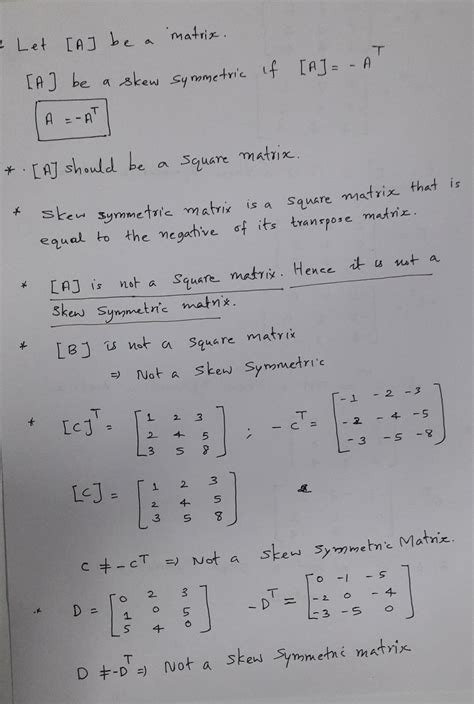 Let [A] be a matrix.
[A] be a skew symmetric if [A] = - A^T
A = -A^T
* [A] should be a square matrix.
* Skew symmetric matrix is a square matrix that is
equal to the negative of its transpose matrix.
* [A] is not a square matrix. Hence it is not a
Skew Symmetric matrix.
* [B] is not a square matrix
⇒ Not a Skew Symmetric
* [C]^T = [1 2 3; 2 4 5; 3 5 8] ; -C^T = [-1 -2 -3; -2 -4 -5; -3 -5 -8]
[C] = [1 2 3; 2 4 5; 3 5 8]
C ≠ -C^T ⇒ Not a Skew Symmetric Matrix.
* D = [0 2 3; 1 0 5; 5 4 0] -D^T = [0 -1 -5; -2 0 -4; -3 -5 0]
D ≠ -D^T ⇒ Not a Skew Symmetric matrix